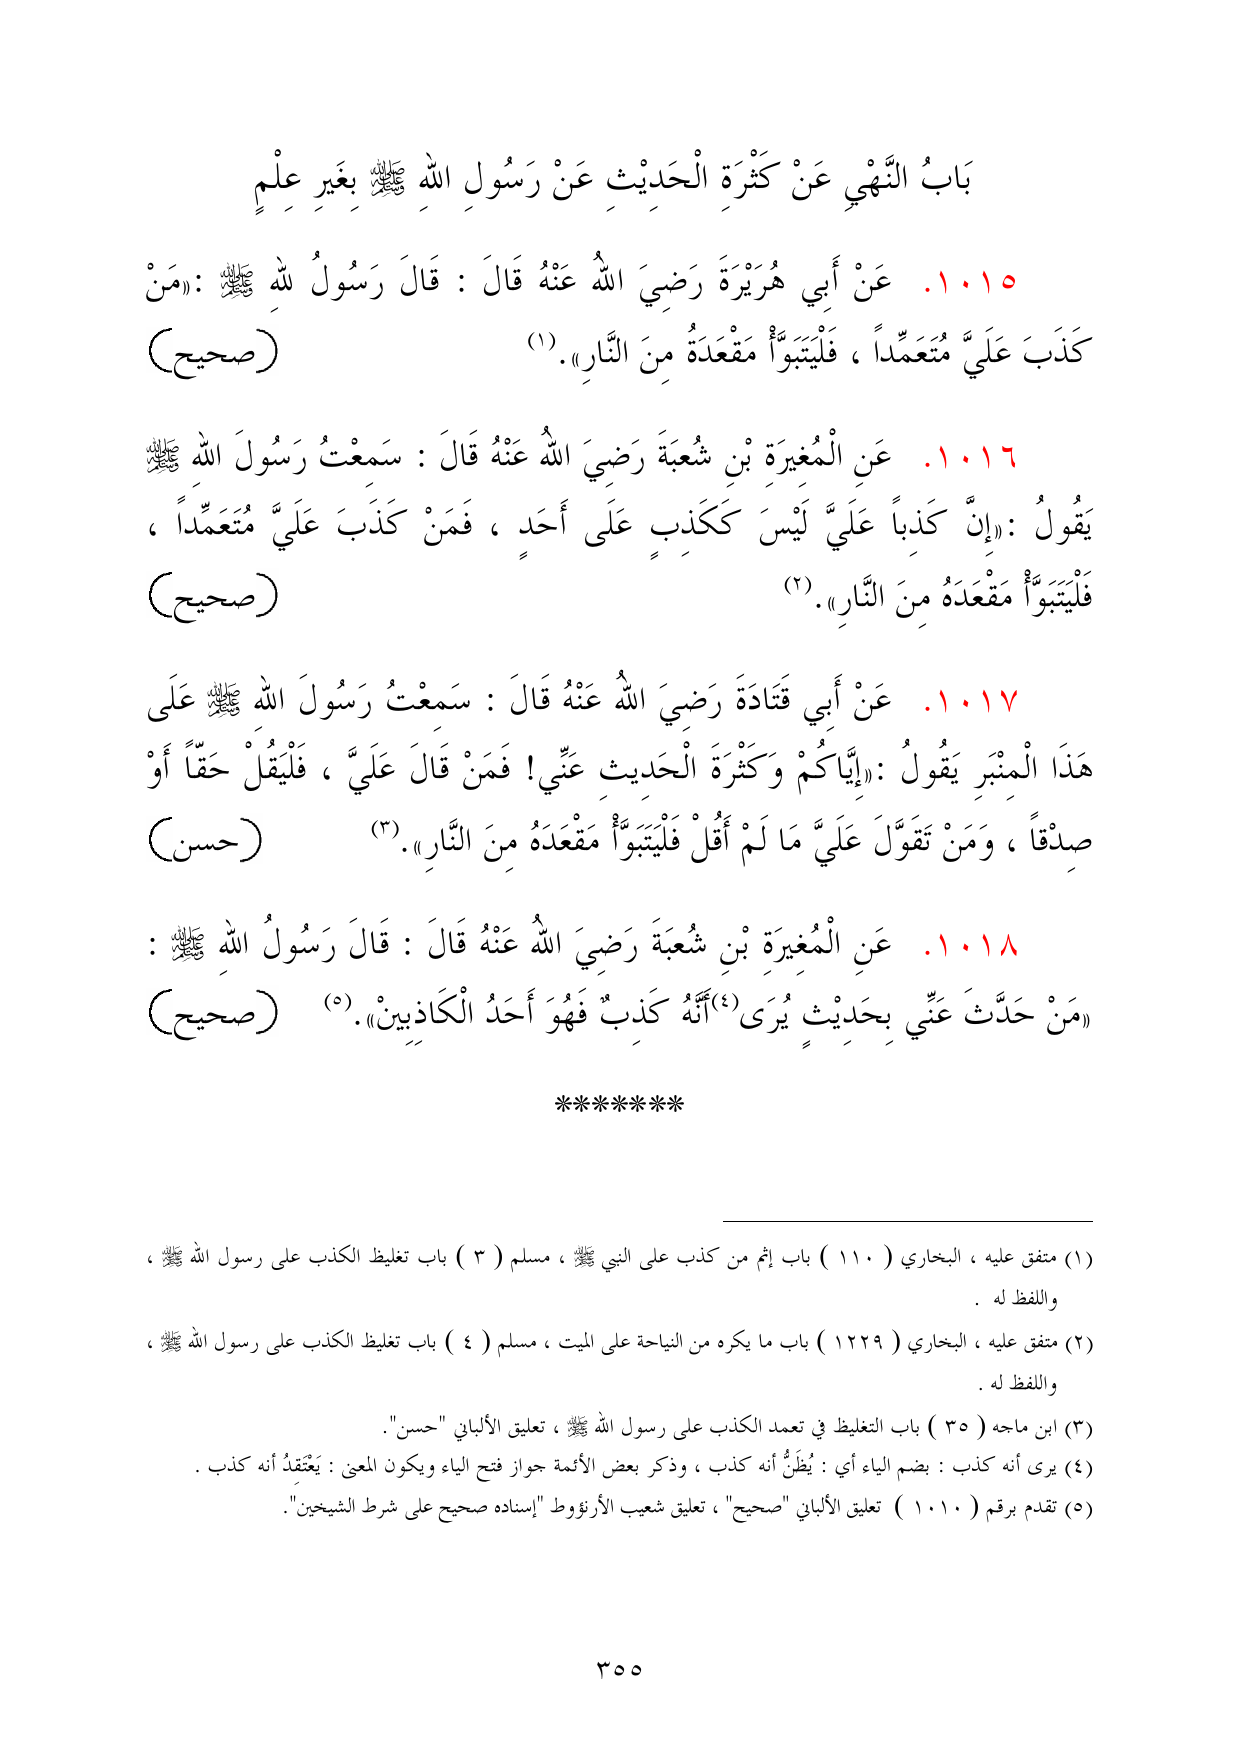 بَابُ النَّهْيِ عَنْ كَثْرَةِ الْحَدِيْثِ عَنْ رَسُولِ اللهِ ﷺ بِغَيرِ عِلْمٍ
١٠١٥. عَنْ أَبِي هُرَيْرَةَ رَضِيَ اللهُ عَنْهُ قَالَ : قَالَ رَسُولُ للهِ ﷺ :«مَنْ
كَذَبَ عَلَيَّ مُتَعَمِّداً ، فَلْيَتَبَوَّأْ مَقْعَدَهُ مِنَ النَّارِ».(١) (صحيح)
١٠١٦. عَنِ الْمُغِيرَةِ بْنِ شُعبَةَ رَضِيَ اللهُ عَنْهُ قَالَ : سَمِعْتُ رَسُولَ اللهِ ﷺ
يَقُولُ :«إِنَّ كَذِباً عَلَيَّ لَيْسَ كَكَذِبٍ عَلَى أَحَدٍ ، فَمَنْ كَذَبَ عَلَيَّ مُتَعَمِّداً ،
فَلْيَتَبَوَّأْ مَقْعَدَهُ مِنَ النَّارِ».(٢) (صحيح)
١٠١٧. عَنْ أَبِي قَتَادَةَ رَضِيَ اللهُ عَنْهُ قَالَ : سَمِعْتُ رَسُولَ اللهِ ﷺ عَلَى
هَذَا الْمِنْبَرِ يَقُولُ :«إِيَّاكُمْ وَكَثْرَةَ الْحَدِيثِ عَنِّي! فَمَنْ قَالَ عَلَيَّ ، فَلْيَقُلْ حَقّاً أَوْ
صِدْقاً ، وَمَنْ تَقَوَّلَ عَلَيَّ مَا لَمْ أَقُلْ فَلْيَتَبَوَّأْ مَقْعَدَهُ مِنَ النَّارِ».(٣) (حسن)
١٠١٨. عَنِ الْمُغِيرَةِ بْنِ شُعبَةَ رَضِيَ اللهُ عَنْهُ قَالَ : قَالَ رَسُولُ اللهِ ﷺ :
«مَنْ حَدَّثَ عَنِّي بِحَدِيْثٍ يُرَى(٤)أَنَّهُ كَذِبٌ فَهُوَ أَحَدُ الْكَاذِبِينْ».(٥) (صحيح)
*******
(١) متفق عليه ، البخاري ( ١١٠ ) باب إثم من كذب على النبي ﷺ ، مسلم ( ٣ ) باب تغليظ الكذب على رسول الله ﷺ ،
واللفظ له .
(٢) متفق عليه ، البخاري ( ١٢٢٩ ) باب ما يكره من النياحة على الميت ، مسلم ( ٤ ) باب تغليظ الكذب على رسول الله ﷺ ،
واللفظ له .
(٣) ابن ماجه ( ٣٥ ) باب التغليظ في تعمد الكذب على رسول الله ﷺ ، تعليق الألباني "حسن".
(٤) يرى أنه كذب : بضم الياء أي : يُظَنُّ أنه كذب ، وذكر بعض الأئمة جواز فتح الياء ويكون المعنى : يَعْتَقِدُ أنه كذب .
(٥) تقدم برقم ( ١٠١٠ ) تعليق الألباني "صحيح" ، تعليق شعيب الأرنؤوط "إسناده صحيح على شرط الشيخين".
٣٥٥